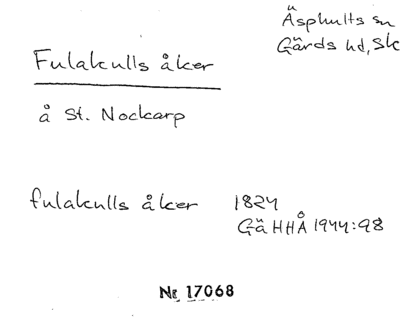 Äsphults sn
Gärds hd, Sk
Fulakulls åker
å St. Nockarp
fulakulls åker 1824
Gä HHÅ 1944:98
Nr 17068